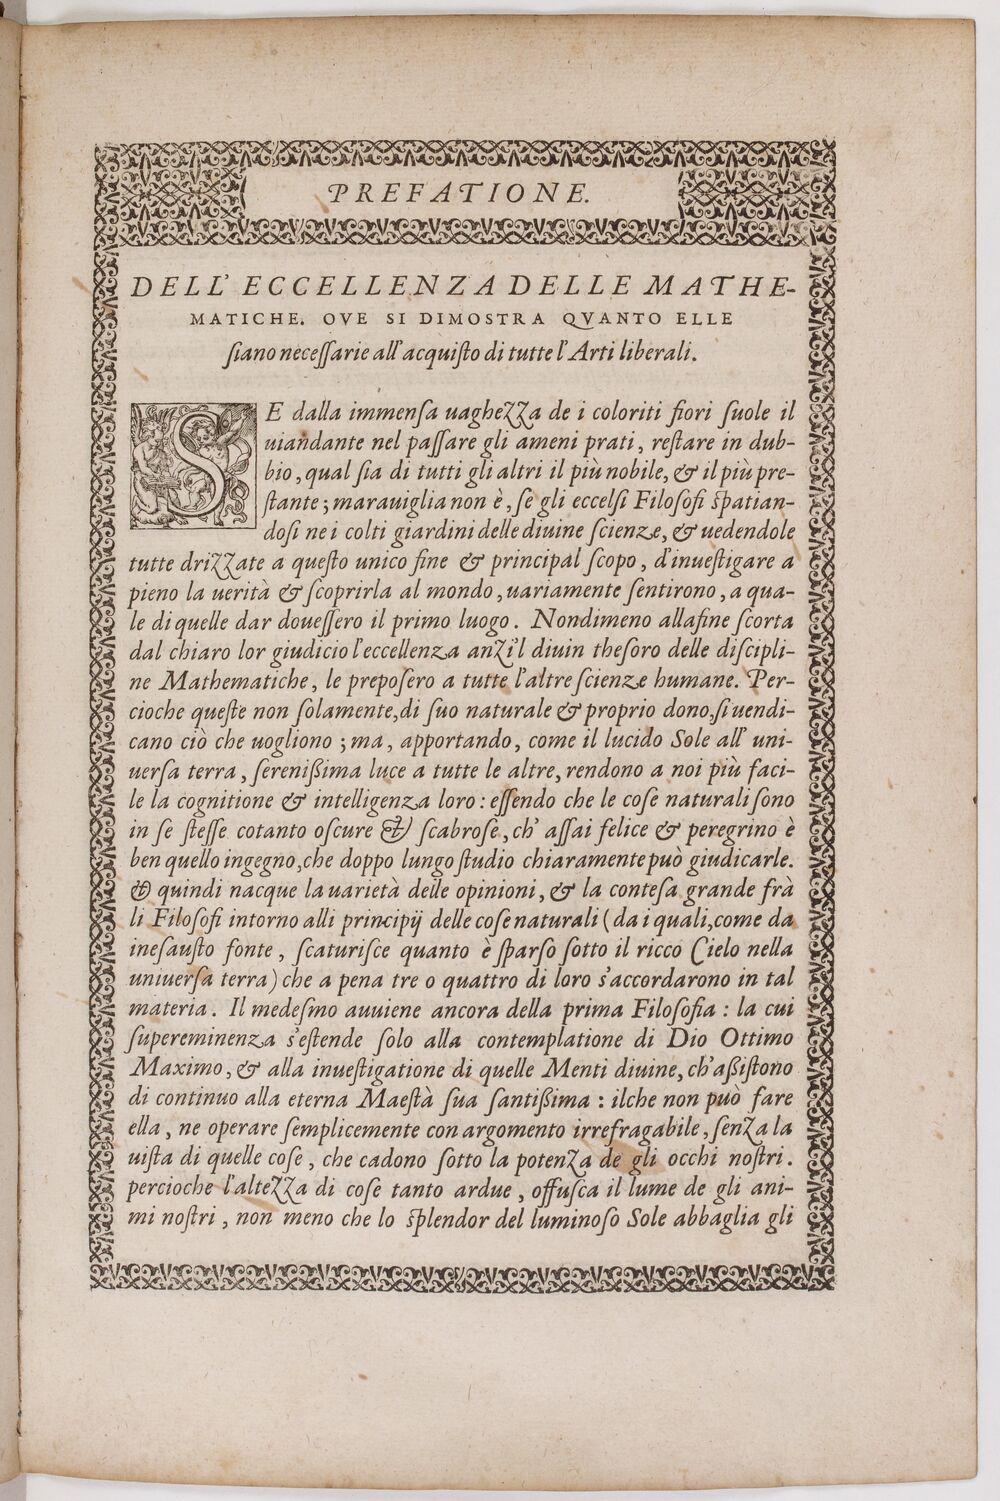 PREFATIONE.
DELL' ECCELLENZA DELLE MATHE-
MATICHE. OVE SI DIMOSTRA QVANTO ELLE
ſiano neceſſarie all' acquiſto di tutte l' Arti liberali.
SE dalla immenſa uaghezza de i coloriti fiori ſuole il
uiandante nel paſſare gli ameni prati, reſtare in dub-
bio, qual ſia di tutti gli altri il più nobile, & il più pre-
ſtante; marauiglia non è, ſe gli eccelſi Filoſofi ſpatian-
doſi ne i colti giardini delle diuine ſcienze, & uedendole
tutte drizzate a queſto unico fine & principal ſcopo, d'inueſtigare a
pieno la uerità & ſcoprirla al mondo, uariamente ſentirono, a qua-
le di quelle dar doueſſero il primo luogo. Nondimeno allafine ſcorta
dal chiaro lor giudicio l'eccellenza anzi'l diuin theſoro delle diſcipli-
ne Mathematiche, le prepoſero a tutte l'altre ſcienze humane. Per-
cioche queſte non ſolamente, di ſuo naturale & proprio dono, ſi uendi-
cano ciò che uogliono; ma, apportando, come il lucido Sole all' uni-
uerſa terra, ſereniſſima luce a tutte le altre, rendono a noi più faci-
le la cognitione & intelligenza loro: eſſendo che le coſe naturali ſono
in ſe ſteſſe cotanto oſcure & ſcabroſe, ch' aſſai felice & peregrino è
ben quello ingegno, che doppo lungo ſtudio chiaramente può giudicarle.
& quindi nacque la uarietà delle opinioni, & la conteſa grande frà
li Filoſofi intorno alli principij delle coſe naturali (da i quali, come da
ineſauſto fonte, ſcaturiſce quanto è ſparſo ſotto il ricco Cielo nella
uniuerſa terra) che a pena tre o quattro di loro s'accordarono in tal
materia. Il medeſmo auuiene ancora della prima Filoſofia: la cui
ſupereminenza s'eſtende ſolo alla contemplatione di Dio Ottimo
Maximo, & alla inueſtigatione di quelle Menti diuine, ch'aſſiſtono
di continuo alla eterna Maeſtà ſua ſantiſſima: ilche non può fare
ella, ne operare ſemplicemente con argomento irrefragabile, ſenza la
uiſta di quelle coſe, che cadono ſotto la potenza de gli occhi noſtri.
percioche l'altezza di coſe tanto ardue, offuſca il lume de gli ani-
mi noſtri, non meno che lo ſplendor del luminoſo Sole abbaglia gli